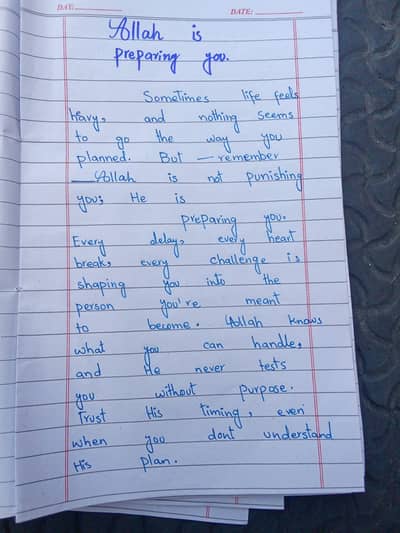 DAY:
DATE:
Allah is
preparing you.
Sometimes life feels
Havy, and nothing seems
to go the way you
planned. But — remember
— Allah is not punishing
you; He is
preparing you.
Every delay, every heart
break, every challenge is
shaping you into the
person you're meant
to become. Allah knows
what you can handle,
and He never tests
you without purpose.
Trust His timing, even
when you dont understand
His plan.